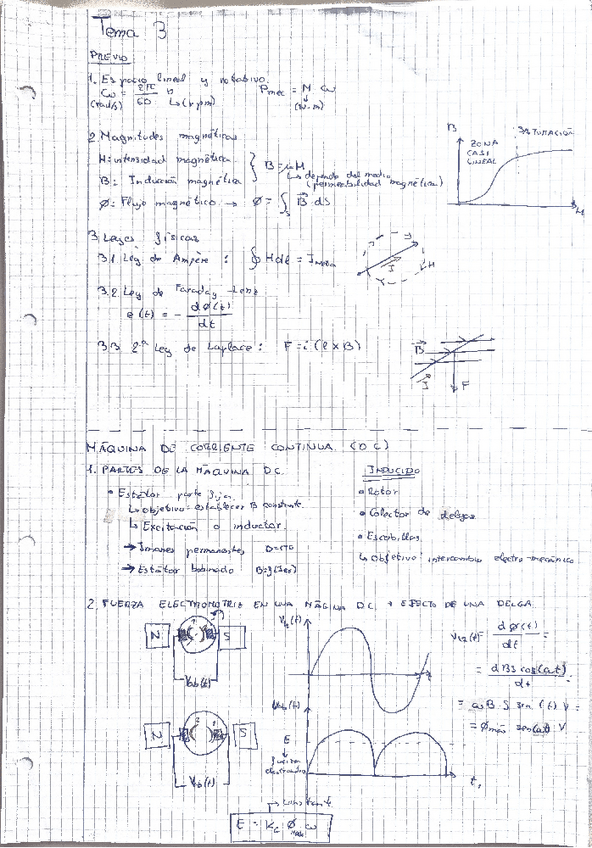 Tema 3
PREVIO
1. Espacio lineal y rotativo.
ω = 2π/60 n Pmec = N ω
(rad/s) ↳ (rpm) (N·m)
2. Magnitudes magnéticas
H: intensidad magnética
B: Inducción magnética } B = μH
↳ depende del medio
(permeabilidad magnética)
Ø: Flujo magnético → Ø = ∫s B dS
B
ZONA CASI LINEAL
SATURACIÓN
H
3. Leyes físicas
3.1 Ley de Ampère : ∮ H dl = I
I H
3.2. Ley de Faraday-Lenz
e(t) = - dØ(t)/dt
3.3 2ª Ley de Laplace: F = i (l × B)
B
I F
MÁQUINA DE CORRIENTE CONTINUA (DC)
1. PARTES DE LA MÁQUINA DC.
• Estátor parte fija.
↳ Objetivo: establecer B constante.
↳ Excitación o inductor.
→ Imanes permanentes B=cte
→ Estátor bobinado
INDUCIDO
• Rotor
• Colector de delgas
• Escobillas
↳ Objetivo: intercambio electro-mecánico
2. FUERZA ELECTROMOTRIZ EN UNA MÁQINA DC. + EFECTO DE UNA DELGA.
N S
Vab(t)
t
dØ(t)/dt =
N S
Vab(t)
Vab(t)
E
↓
fuerza
electromotriz
t
→ constante
E = Kc Ø ω